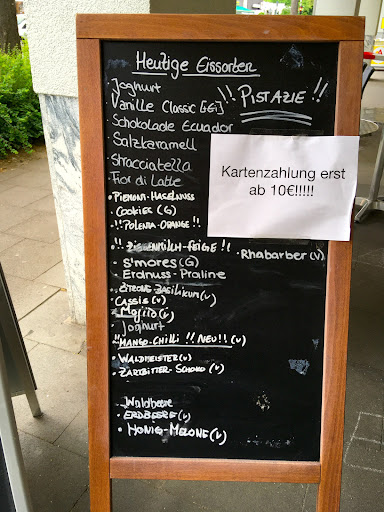 Heutige Eissorten
Joghurt
Vanille Classic [Ei]
!! PISTAZIE !!
Schokolade Ecuador
Salzkaramell
Stracciatella
Fior di Latte
Kartenzahlung erst
ab 10€!!!!!
• PIEMONT-HASELNUSS
• COOKIES (G)
!! POLENTA-ORANGE !!
!! ZIEGENMILCH-FEIGE !!
• Rhabarber (V)
• S'mores (G)
• ERDNUSS-PRALINE
• ZITRONE BASILIKUM (V)
• CASSIS (V)
• Mojito (V)
• Joghurt
!! MANGO-CHILLI !! NEU!! (V)
• WALDMEISTER (V)
• ZARTBITTER-SCHOKO (V)
Waldbeere
• ERDBEERE (V)
• HONIG-MELONE (V)